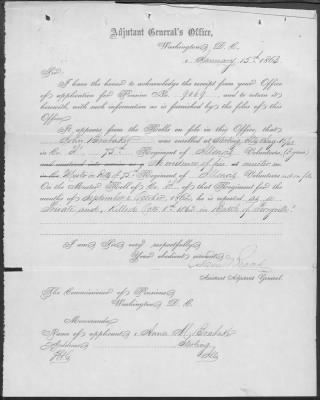 Adjutant General's Office,
Washington, D. C.
January 15th, 1863
Sir:
I have the honor to acknowledge the receipt from your Office
of application for Pension No. 9069, and to return it
herewith, with such information as is furnished by the files of this
Office.
It appears from the Rolls on file in this Office, that
John was enrolled at Sterling
in Co. 75th Regiment of Illinois Volunteers,
and mustered into service as A evidence of his muster in
in Co. 75th Regiment of Illinois Volunteers not on file
On the Muster Roll of Co. of that Regiment for the
months of September & October, 1862, he is reported as a
Private and Killed Oct. 8th 1862 in Battle of Perryville
I am Sir, very respectfully,
Your obedient servant,
Assistant Adjutant General.
The Commissioner of Pensions
Washington, D. C.
Memoranda:
Name of applicant, Anna M.
Address, Sterling
Ills